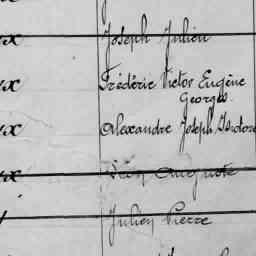 Joseph Julien
Frédéric Victor Eugène
Georges
Alexandre Joseph Isidore
Auguste
Julien Pierre